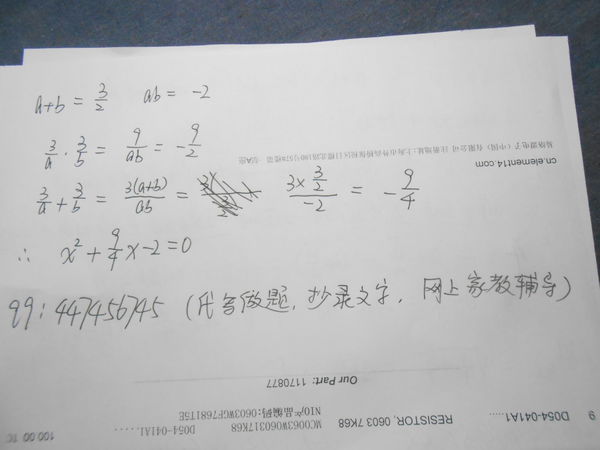 a+b = 3/2  ab = -2
3/a · 3/b = 9/ab = -9/2
3/a + 3/b = 3(a+b)/ab = 3×3/2/-2 = -9/4
∴ x² + 9/4 x - 2 = 0
qq: 447456745 (代写做题, 抄录文字, 网上家教辅导)
cn.element14.com
Our Part: 1170877
9 D054-041A1......
RESISTOR, 0603 7K68
MC0063W060317K68 D054-041A1......
N10产品编码:0603WGF7681T5E
100.00